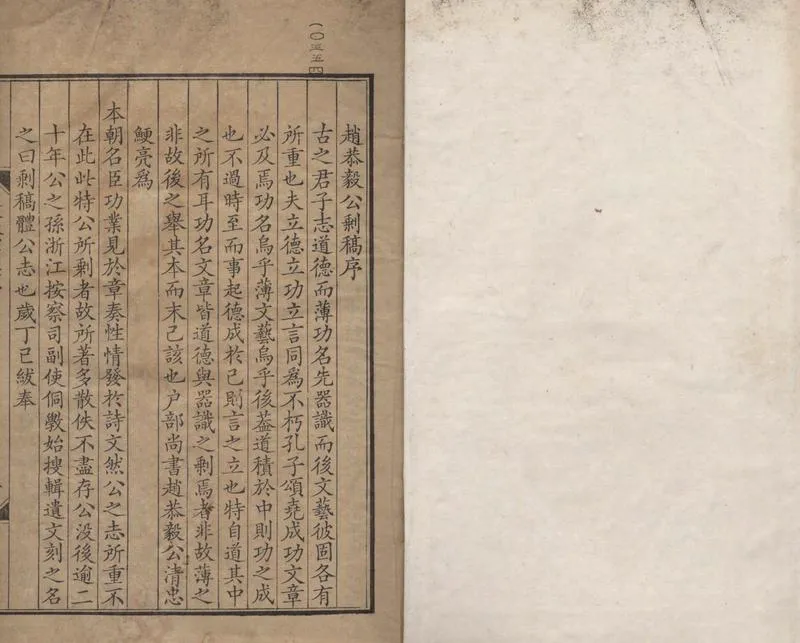 (〇三五五四
趙恭毅公剩稿序
古之君子志道德而薄功名先器識而後文藝彼固各有
所重也夫立德立功立言同為不朽孔子頌堯成功文章
必及焉功名烏乎薄文藝烏乎後葢道積於中則功之成
也不過時至而事起德成於己則言之立也特自道其中
之所有耳功名文章皆道德與器識之剩焉者非故薄之
非故後之舉其本而末已該也戶部尚書趙恭毅公清忠
鯁亮為
本朝名臣功業見於章奏性情發於詩文然公之志所重不
在此此特公所剩者故所著多散佚不盡存公沒後逾二
十年公之孫浙江按察司副使侗斆始搜輯遺文刻之名
之曰剩稿體公志也歲丁巳紱奉